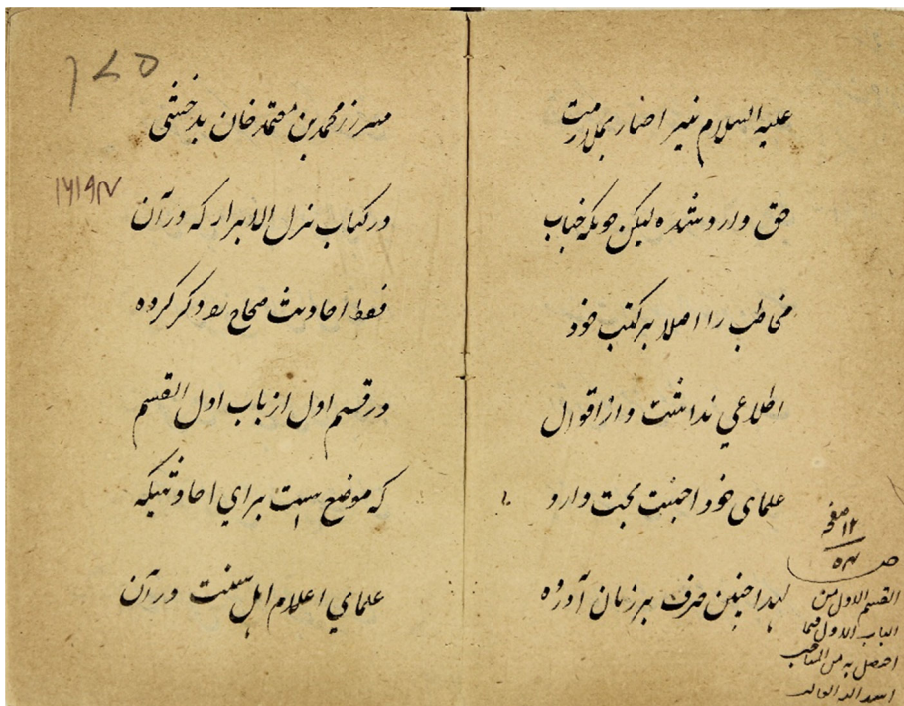 علیه السلام نیز اخبار بملازمت
حق وارد شده لیکن چونکه جناب
مخاطب را اصلا بر کتب خود
اطلاعي نداشت و از اقوال
علمای خود اجنبیت محبت دارد
لهذا چنین حرف بر زبان آورده
۱۲ صفحه
القسم الاول من
الباب الاول فیما
اختص به من المناقب
اسد الله الغالب
میرزا محمد بن معتمد خان بدخشی
در کتاب نزل الابرار که در آن
فقط احادیث صحاح بود ذکر کرده
در قسم اول از باب اول القسم
که موضع است برای احادیثیکه
علمای اعلام اهل سنت در آن